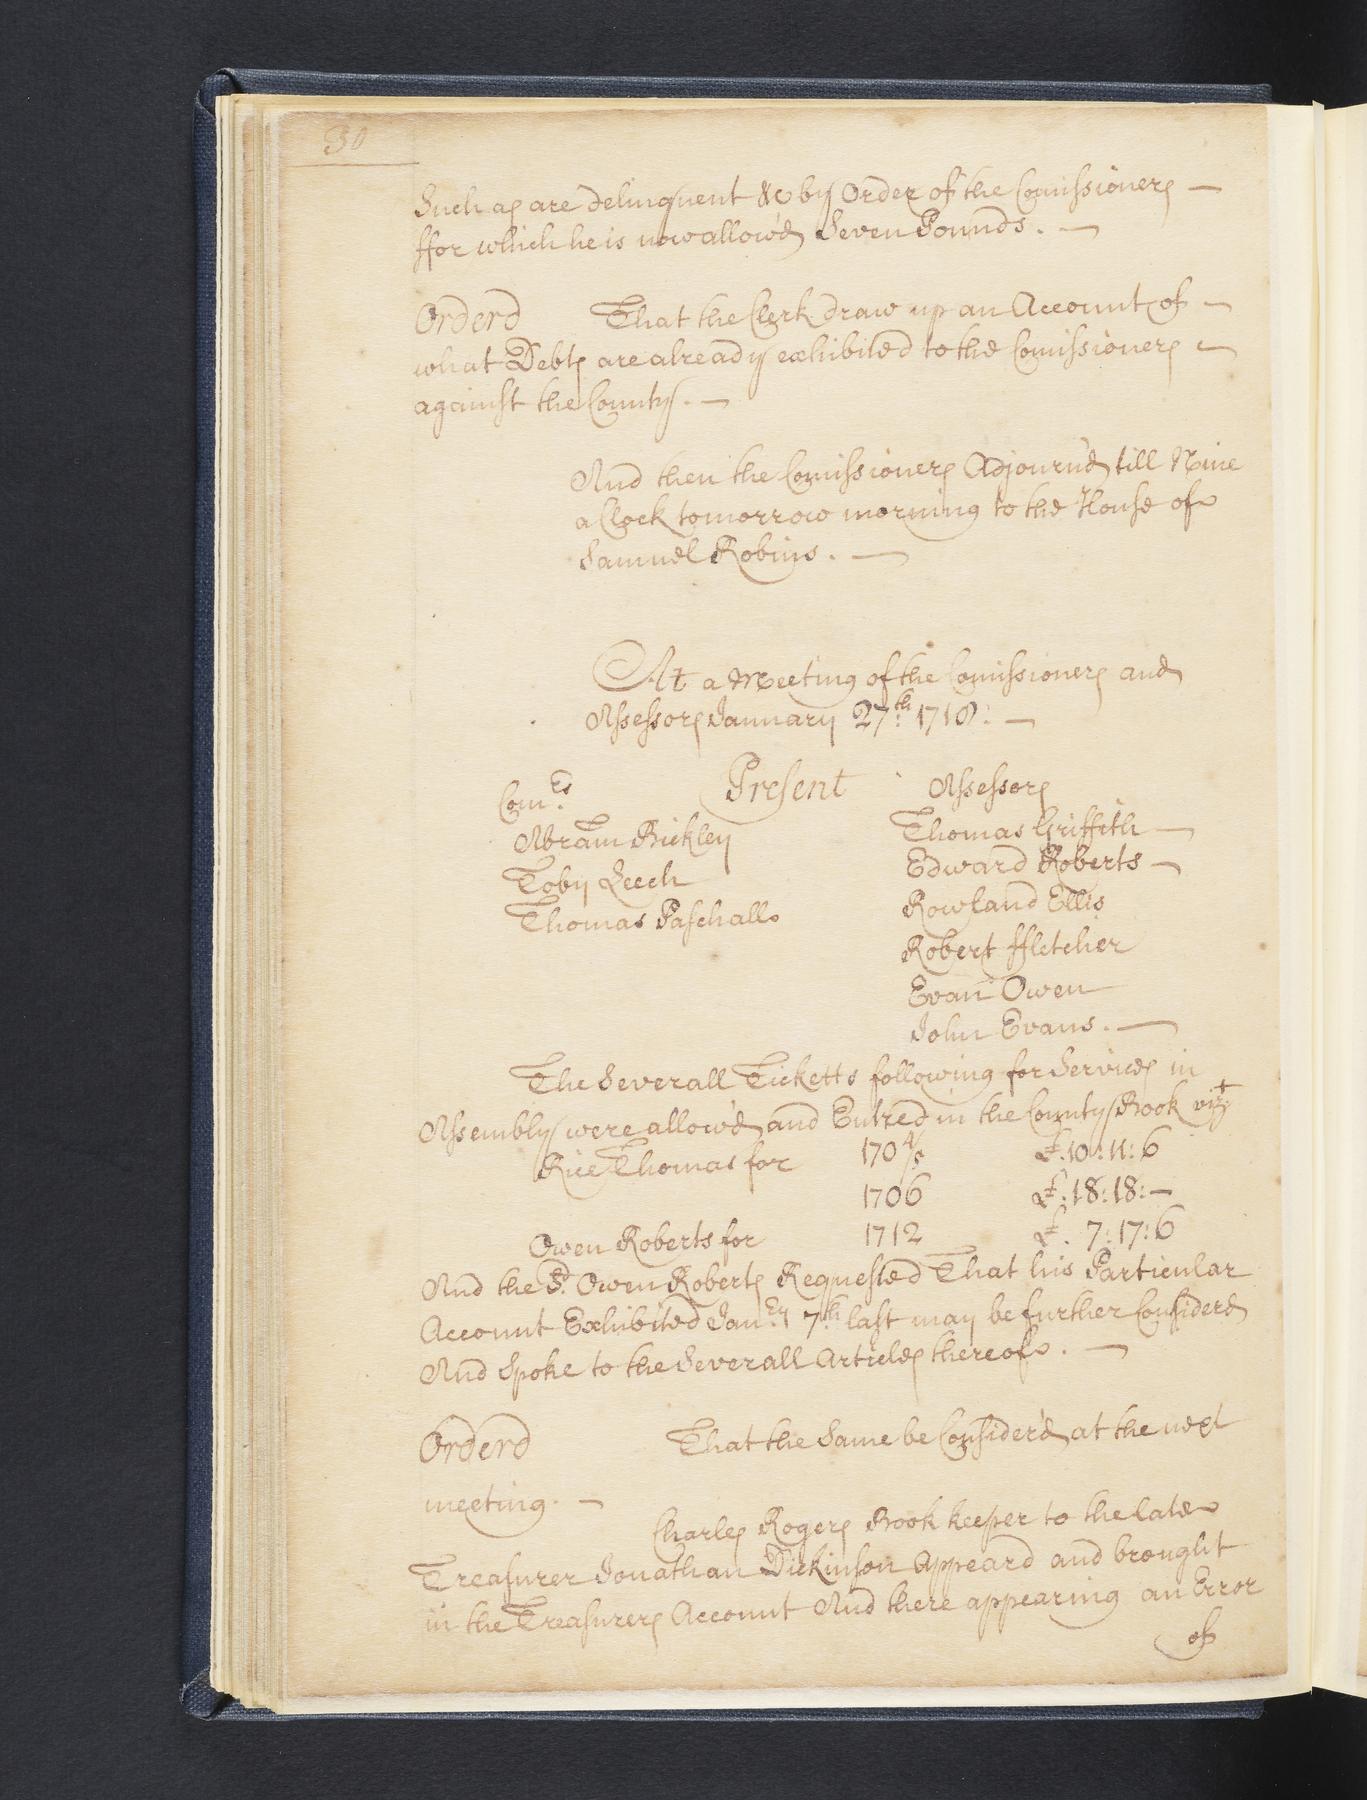 30
Such as are delinquent &c by Order of the Comissioners —
ffor which he is now allow'd Seven Pounds. —
Orderd That the Clerk draw up an Account of —
what Debts are already exhibited to the Comissioners —
against the County. —
And then the Comissioners Adjourn'd till Nine
a Clock tomorrow morning to the House of
Samuel Robins. —
At a Meeting of the Comissioners and
Assessors January 27th. 1718: —
Com:rs Present Assessors
Abram Bickley Thomas Griffith —
Toby Leech Edward Roberts —
Thomas Paschall Rowland Ellis
Robert ffletcher
Evan Owen
John Evans. —
The Severall Ticketts following for Services in
Assembly were allow'd and Entred in the County Book vizt
Rice Thomas for 1704/5 £.10:11:6
1706 £.18:18:—
Owen Roberts for 1712 £. 7:17:6
And the Sd. Owen Roberts Requested That his Particular
Account Exhibited Jan:ry 7th last may be further Considerd
And Spoke to the Severall Articles thereof. —
Orderd That the Same be Consider'd at the next
meeting. —
Charles Rogers Book keeper to the late
Treasurer Jonathan Dickinson Appeard and brought
in the Treasurers Account And there appearing an Error
of